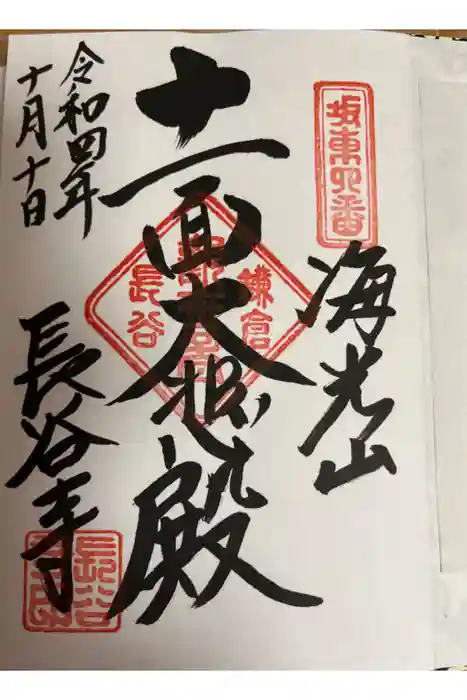 坂東四番
海光山
十一面大悲殿
鎌倉
長谷
令和四年
十月十日
長谷寺